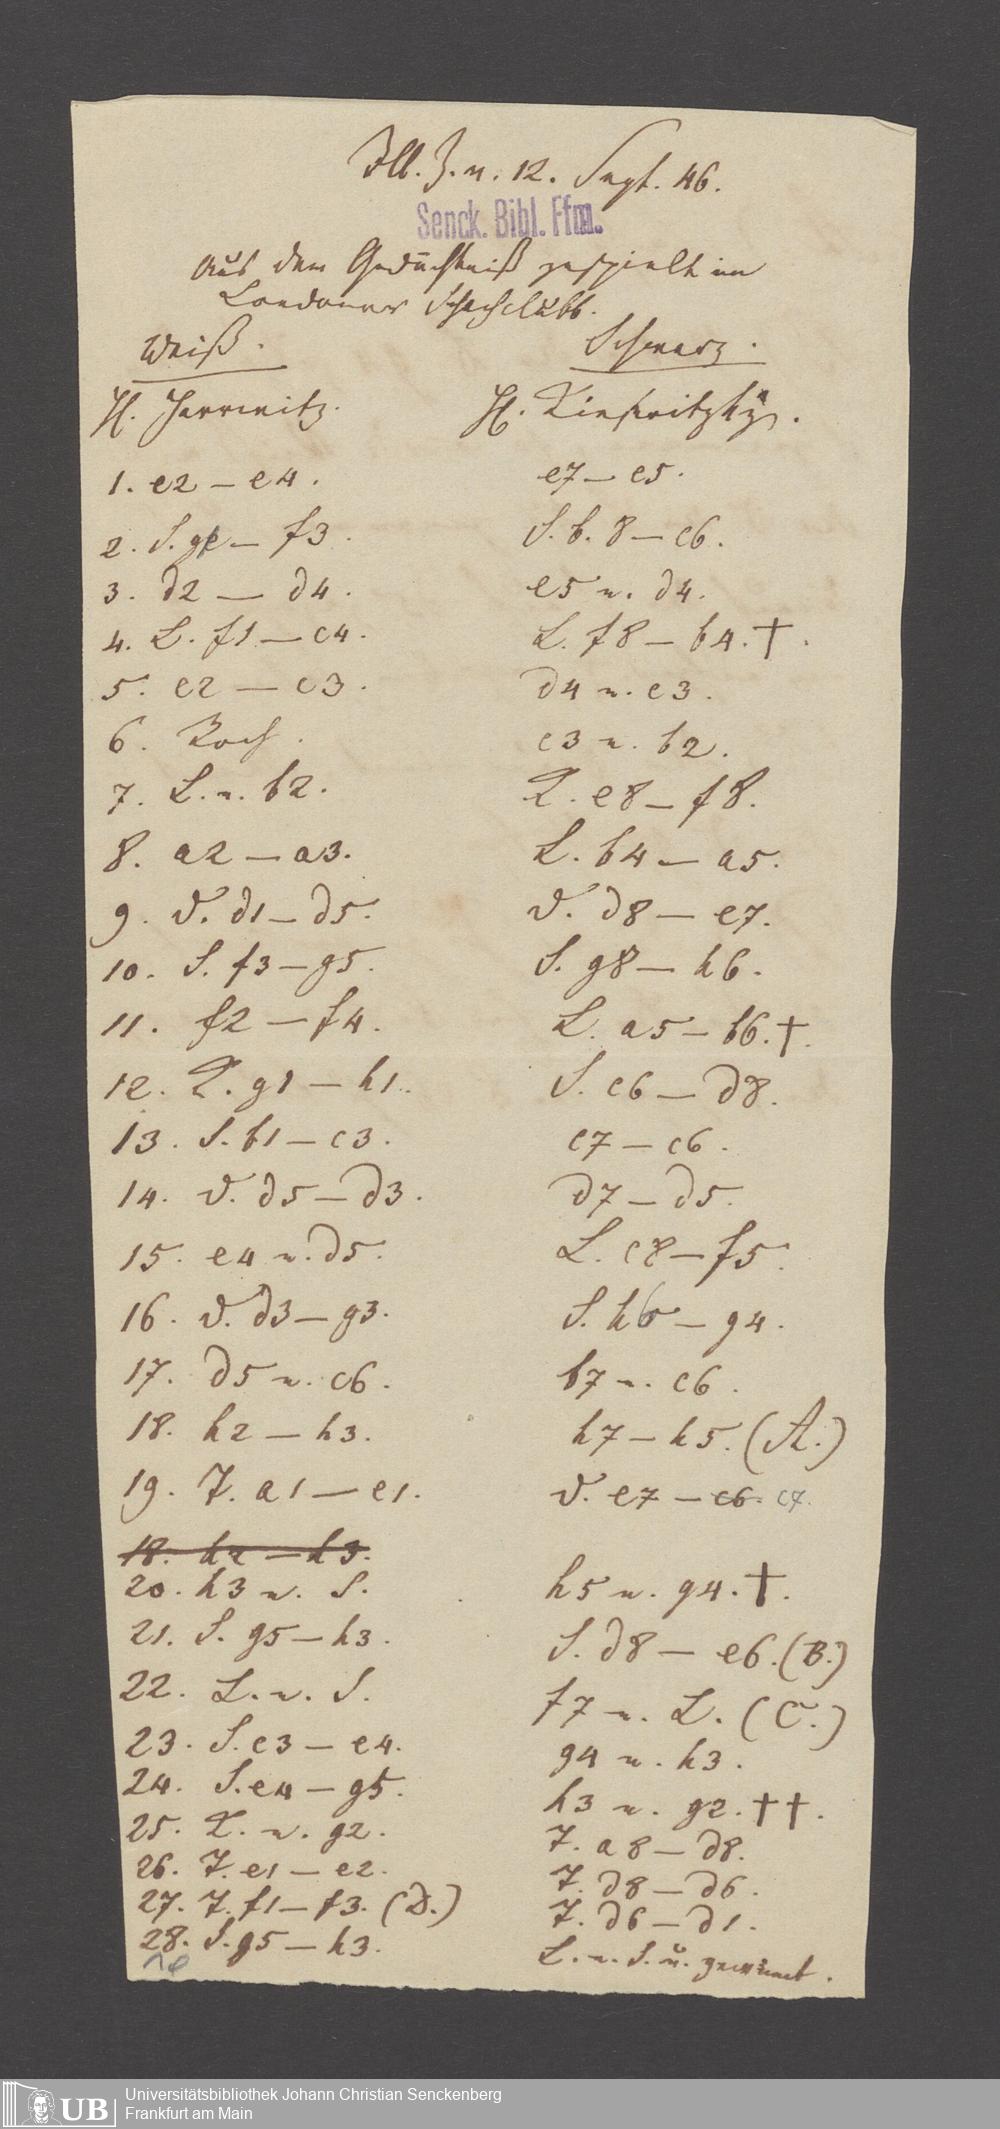 Ill. Z. v. 12. Sept. 46.
Senck. Bibl. Ffm.
Aus dem Gedächtniß gespielt im
Londoner Schachclubb.
Weiß. Schwarz.
H. Harrwitz. H. Kieseritzky.
1. e2 — e4. e7 — e5.
2. S. g1 — f3. S. b. 8 — c6.
3. d2 — d4. e5 n. d4.
4. L. f1 — c4. L. f8 — b4. †.
5. c2 — c3. d4 n. c3.
6. Roch. c3 n. b2.
7. L. n. b2. K. e8 — f8.
8. a2 — a3. L. b4 — a5.
9. D. d1 — d5. D. d8 — e7.
10. S. f3 — g5. S. g8 — h6.
11. f2 — f4. L. a5 — b6. †.
12. K. g1 — h1. S. c6 — d8.
13. S. b1 — c3. c7 — c6.
14. D. d5 — d3. d7 — d5.
15. e4 n. d5. L. c8 — f5.
16. D. d3 — g3. S. h6 — g4.
17. d5 n. c6. b7 n. c6.
18. h2 — h3. h7 — h5. (A.)
19. T. a1 — e1. D. e7 — c6. c7.
18. h2 — h3.
20. h3 n. S. h5 n. g4. †.
21. S. g5 — h3. S. d8 — e6. (B.)
22. L. n. S. f7 n. L. (C.)
23. S. c3 — e4. g4 n. h3.
24. S. e4 — g5. h3 n. g2. ††.
25. K. n. g2. T. a8 — d8.
26. T. e1 — e2. T. d8 — d6.
27. T. f1 — f3. (D.) T. d6 — d1.
28. S. g5 — h3. L. n. S. u. gewinnt.
UB
Universitätsbibliothek Johann Christian Senckenberg
Frankfurt am Main